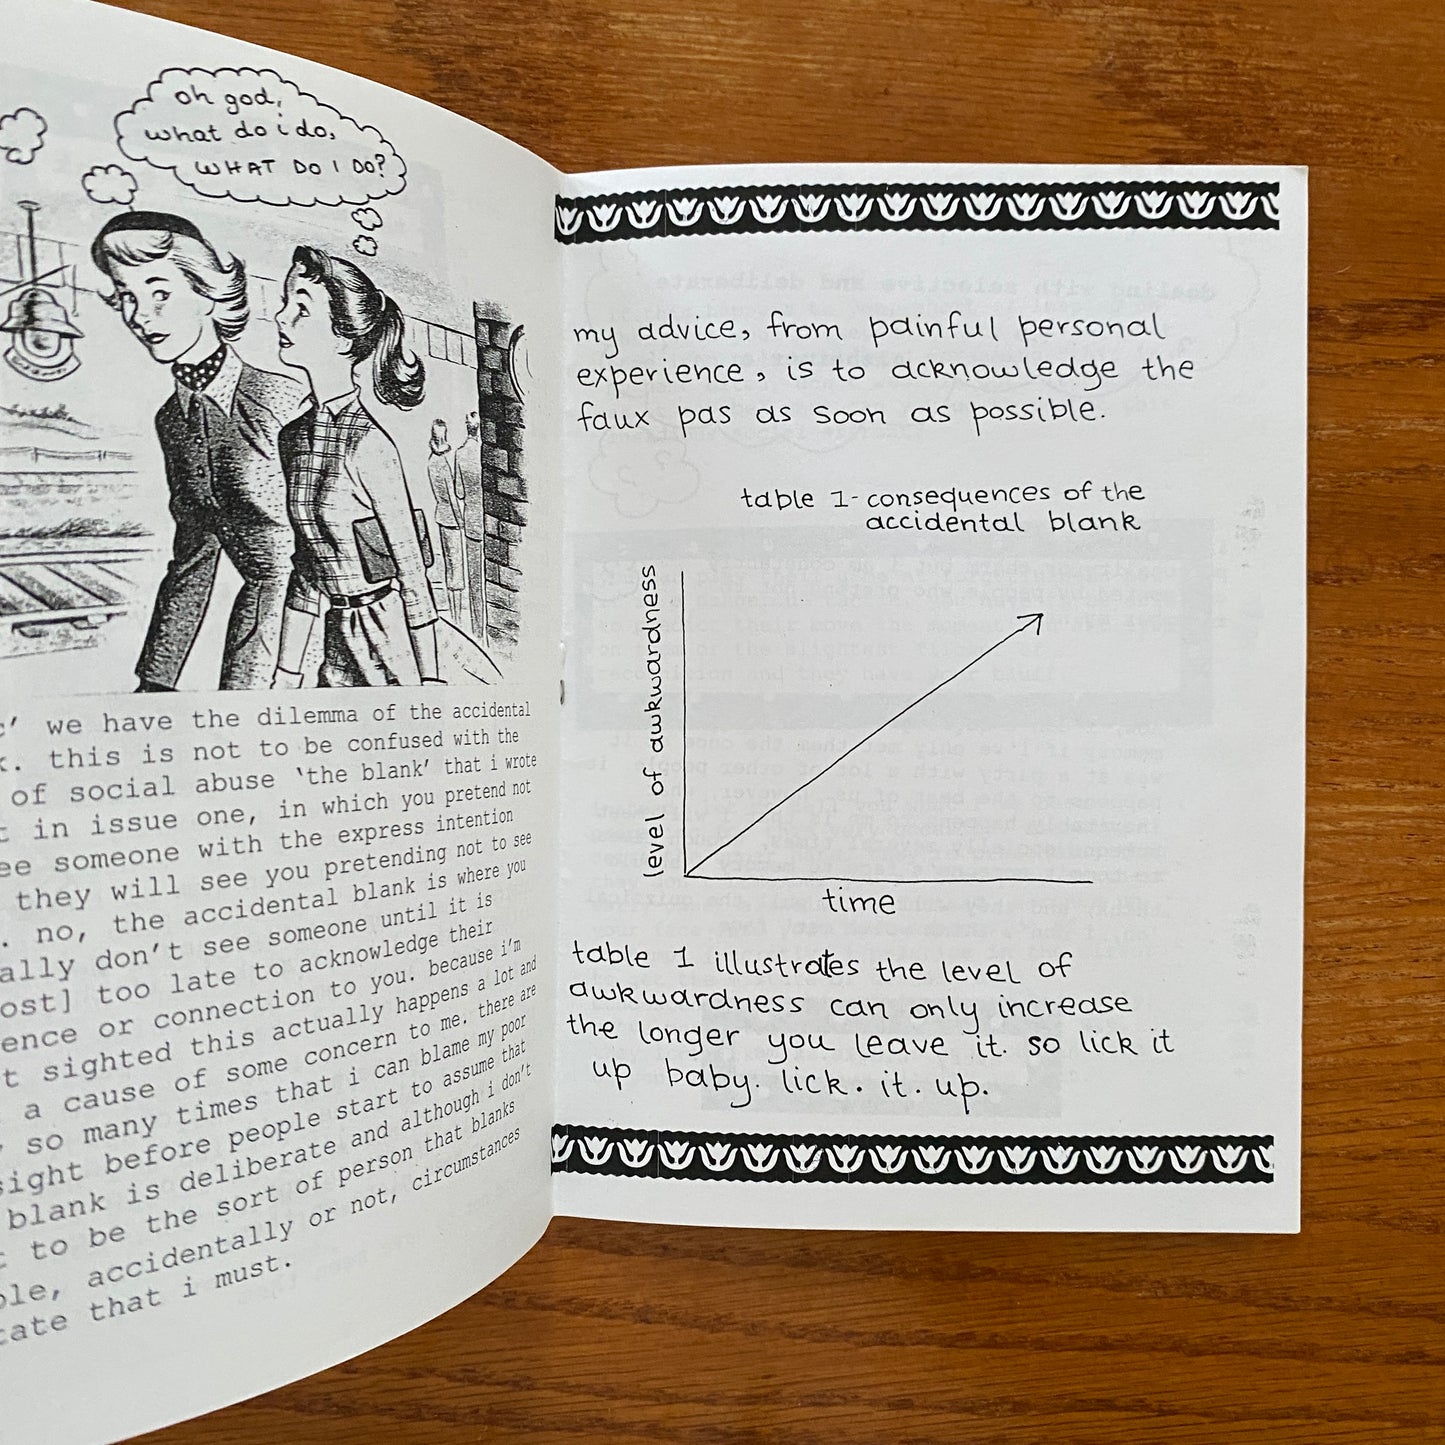 oh god,
what do i do,
WHAT DO I DO?
we have the dilemma of the accidental
this is not to be confused with the
of social abuse 'the blank' that i wrote
in issue one, in which you pretend not
someone with the express intention
they will see you pretending not to see
no, the accidental blank is where you
don't see someone until it is
too late to acknowledge their
or connection to you. because i'm
sighted this actually happens a lot and
a cause of some concern to me. there are
so many times that i can blame my poor
before people start to assume that
blank is deliberate and although i don't
to be the sort of person that blanks
accidentally or not, circumstances
that i must.
my advice, from painful personal
experience, is to acknowledge the
faux pas as soon as possible.
table 1- consequences of the
accidental blank
level of awkwardness
time
table 1 illustrates the level of
awkwardness can only increase
the longer you leave it. so lick it
up baby. lick. it. up.